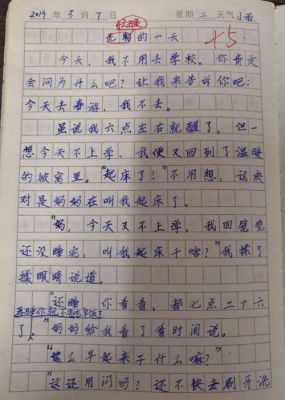 2019年5月7日 星期二 天气小雨
无聊的一天
+5
今天,我不用去学校。你肯定
会问为什么吧?让我来告诉你吧:
今天去春游,我不去。
虽说我六点左右就醒了,但一
想今天不上学,我便又回到了温暖
的被窝里。“起床了!”不用想,这绝
对是妈妈在叫我起床了。
“妈,今天又不上学,我回笼觉
还没睡完,叫我起床干啥?”我揉了
揉眼睛说道。
“还睡,你看看,都七点二十六
了。”妈妈给我看了看时间说。
“这么早起来干什么嘛?”
“这还用问吗?还不快去刷牙洗